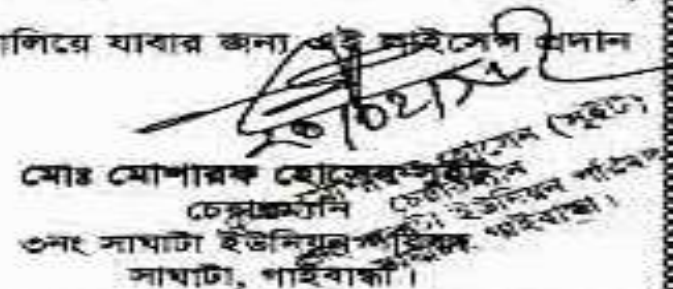 লিয়ে যাবার জন্য এই লাইসেন্স প্রদান
মোঃ মোশারফ হোসেন সুইট
চেয়ারম্যান
৩নং সাঘাটা ইউনিয়ন পরিষদ
সাঘাটা, গাইবান্ধা।
হোসেন (সুইট)
চেয়ারম্যান
ইউনিয়ন পরিষদ
গাইবান্ধা।